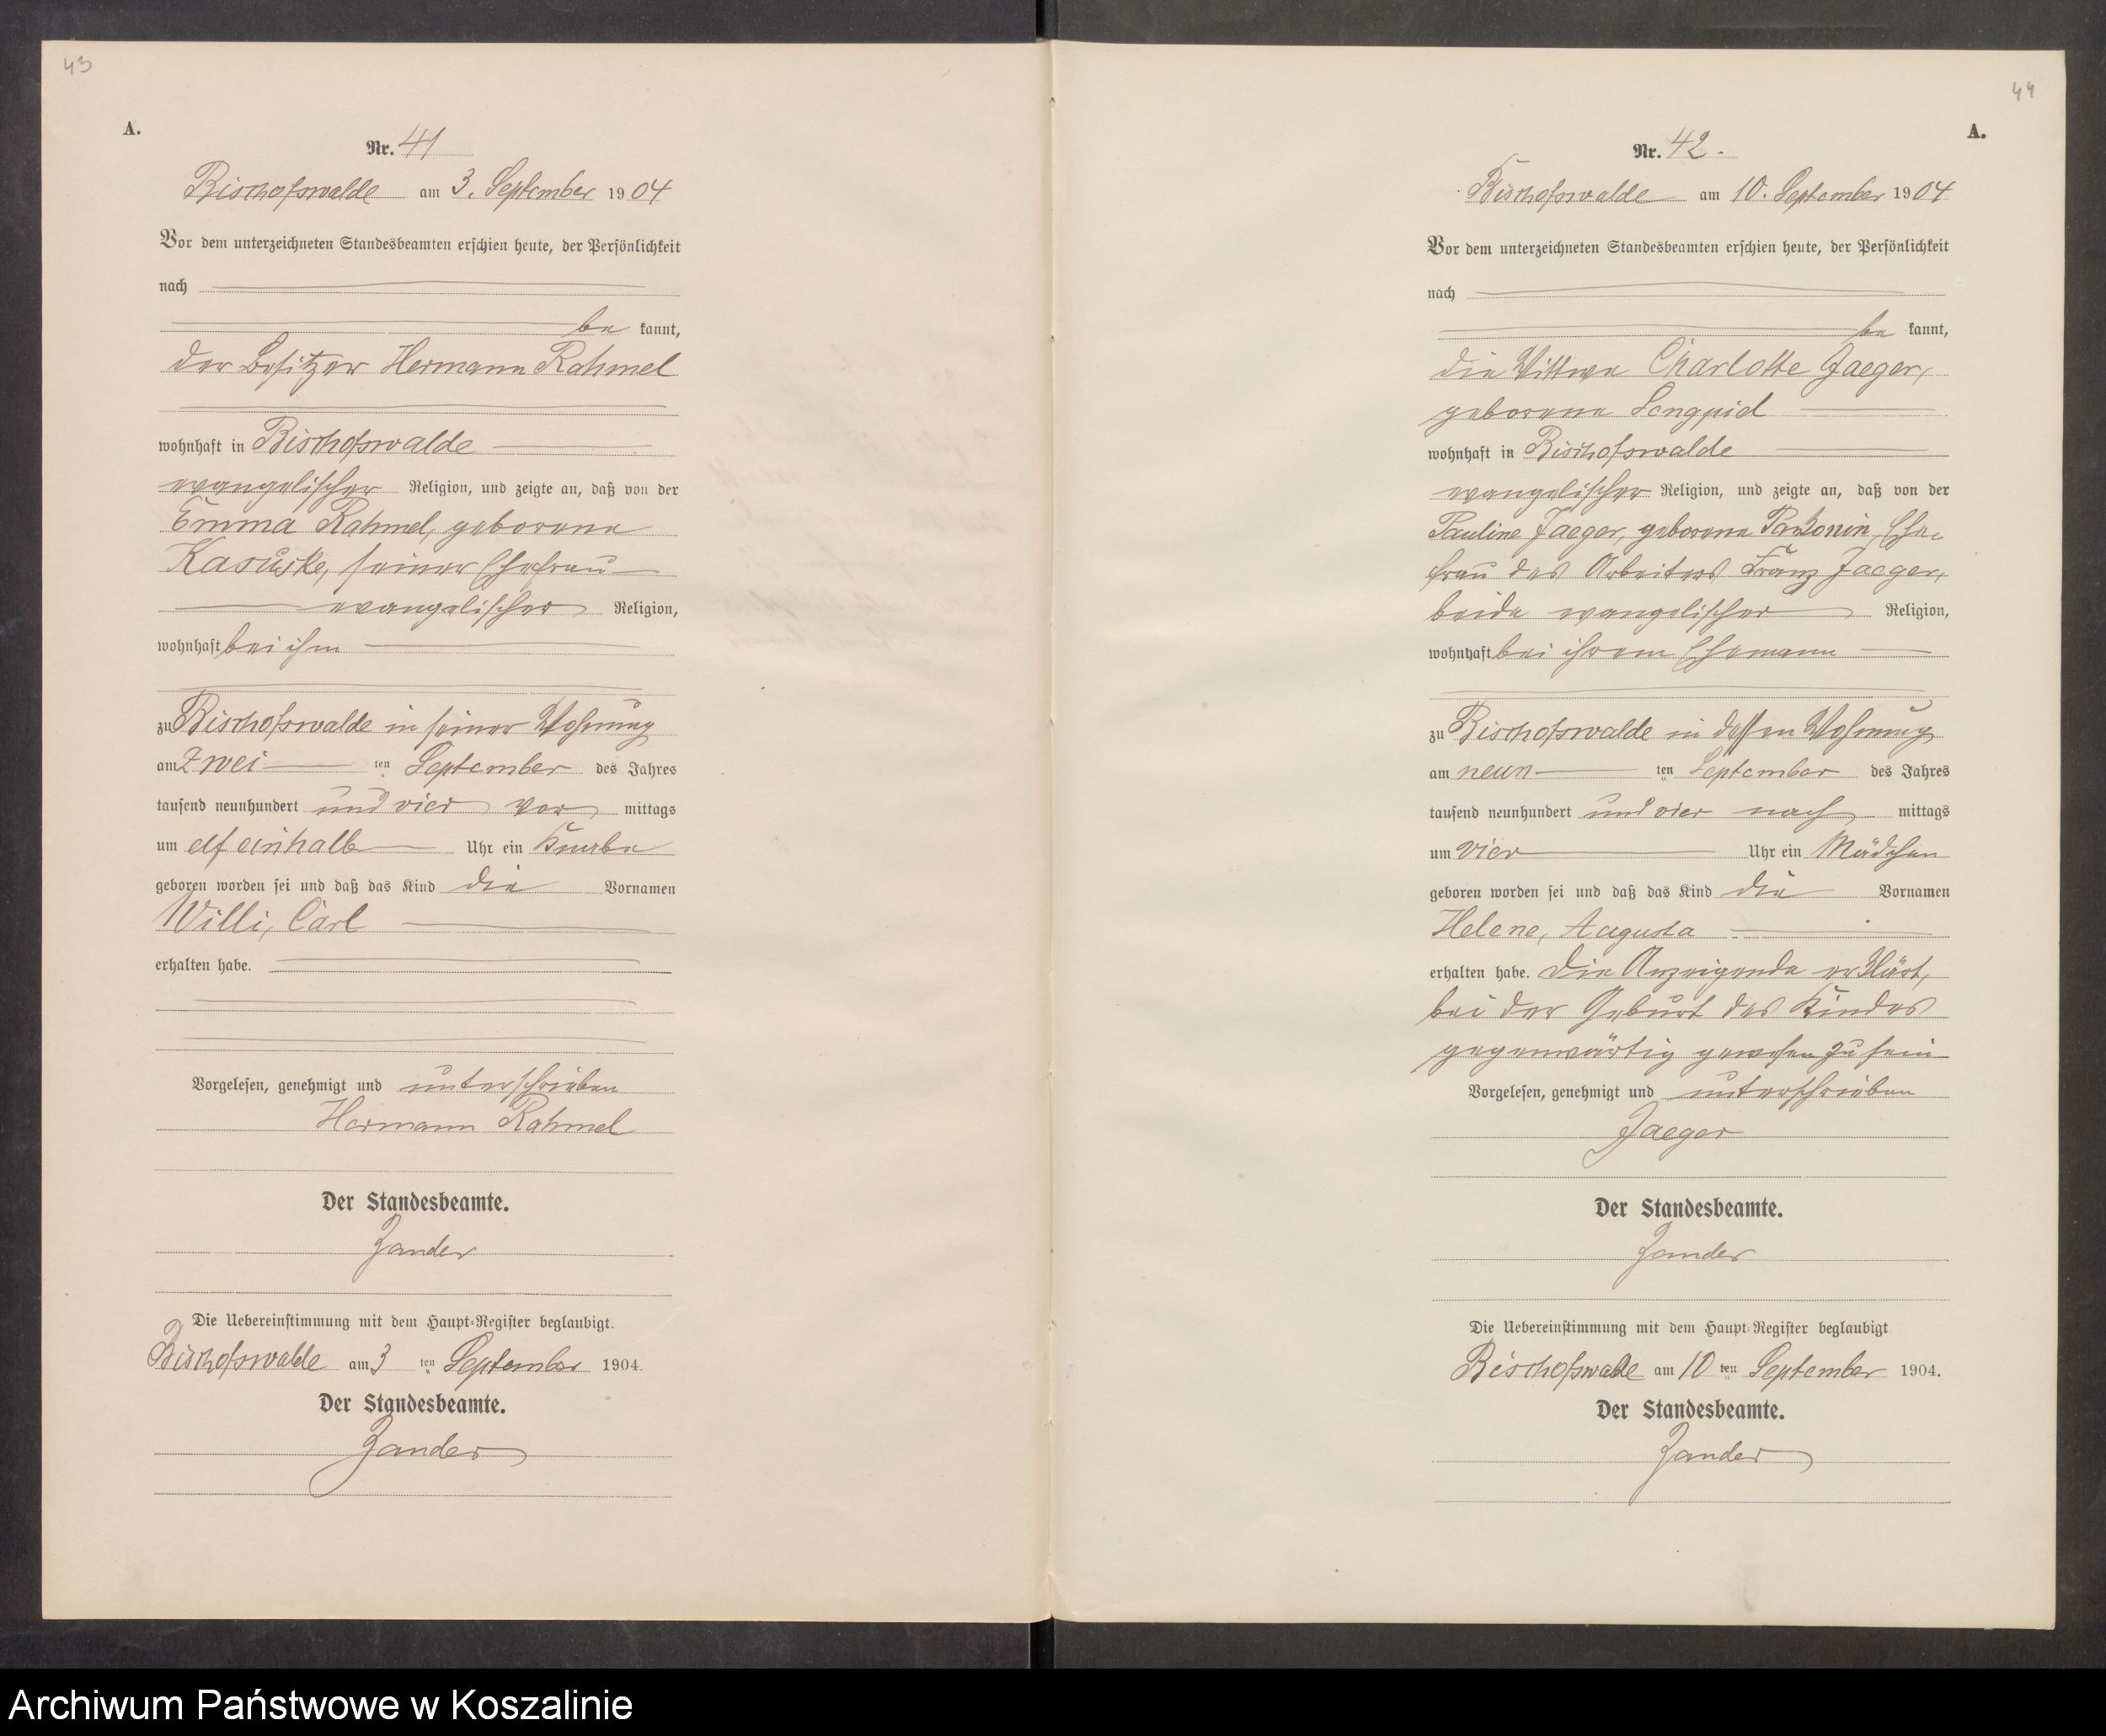 43
A.
Nr. 41
Bischofswalde am 3. September 1904
Vor dem unterzeichneten Standesbeamten erschien heute, der Persönlichkeit
nach
be kannt,
der Besitzer Hermann Rahmel
wohnhaft in Bischofswalde
evangelischer Religion, und zeigte an, daß von der
Emma Rahmel, geborene
Kasuske, seiner Ehefrau
evangelischer Religion,
wohnhaft bei ihm
zu Bischofswalde in seiner Wohnung
am zwei ten September des Jahres
tausend neunhundert und vier vor mittags
um elf einhalb Uhr ein Knabe
geboren worden sei und daß das Kind die Vornamen
Willi, Carl
erhalten habe.
Vorgelesen, genehmigt und unterschrieben
Hermann Rahmel
Der Standesbeamte.
Zander
Die Uebereinstimmung mit dem Haupt-Register beglaubigt.
Bischofswalde am 3 ten September 1904.
Der Standesbeamte.
Zander
44
A.
Nr. 42.
Bischofswalde am 10. September 1904
Vor dem unterzeichneten Standesbeamten erschien heute, der Persönlichkeit
nach
be kannt,
die Wittwe Charlotte Jaeger,
geborene
wohnhaft in Bischofswalde
evangelischer Religion, und zeigte an, daß von der
Pauline Jaeger, geborene Ehe-
frau des Arbeiters Franz Jaeger,
beide evangelischer Religion,
wohnhaft bei ihrem Ehemann
zu Bischofswalde in dessen Wohnung
am neun ten September des Jahres
tausend neunhundert und vier nach mittags
um vier Uhr ein Mädchen
geboren worden sei und daß das Kind die Vornamen
Helene, Augusta
erhalten habe. Die Anzeigende erklärt,
bei der Geburt des Kindes
gegenwärtig gewesen zu sein
Vorgelesen, genehmigt und unterschrieben
Jaeger
Der Standesbeamte.
Zander
Die Uebereinstimmung mit dem Haupt-Register beglaubigt
Bischofswalde am 10 ten September 1904.
Der Standesbeamte.
Zander
Archiwum Państwowe w Koszalinie